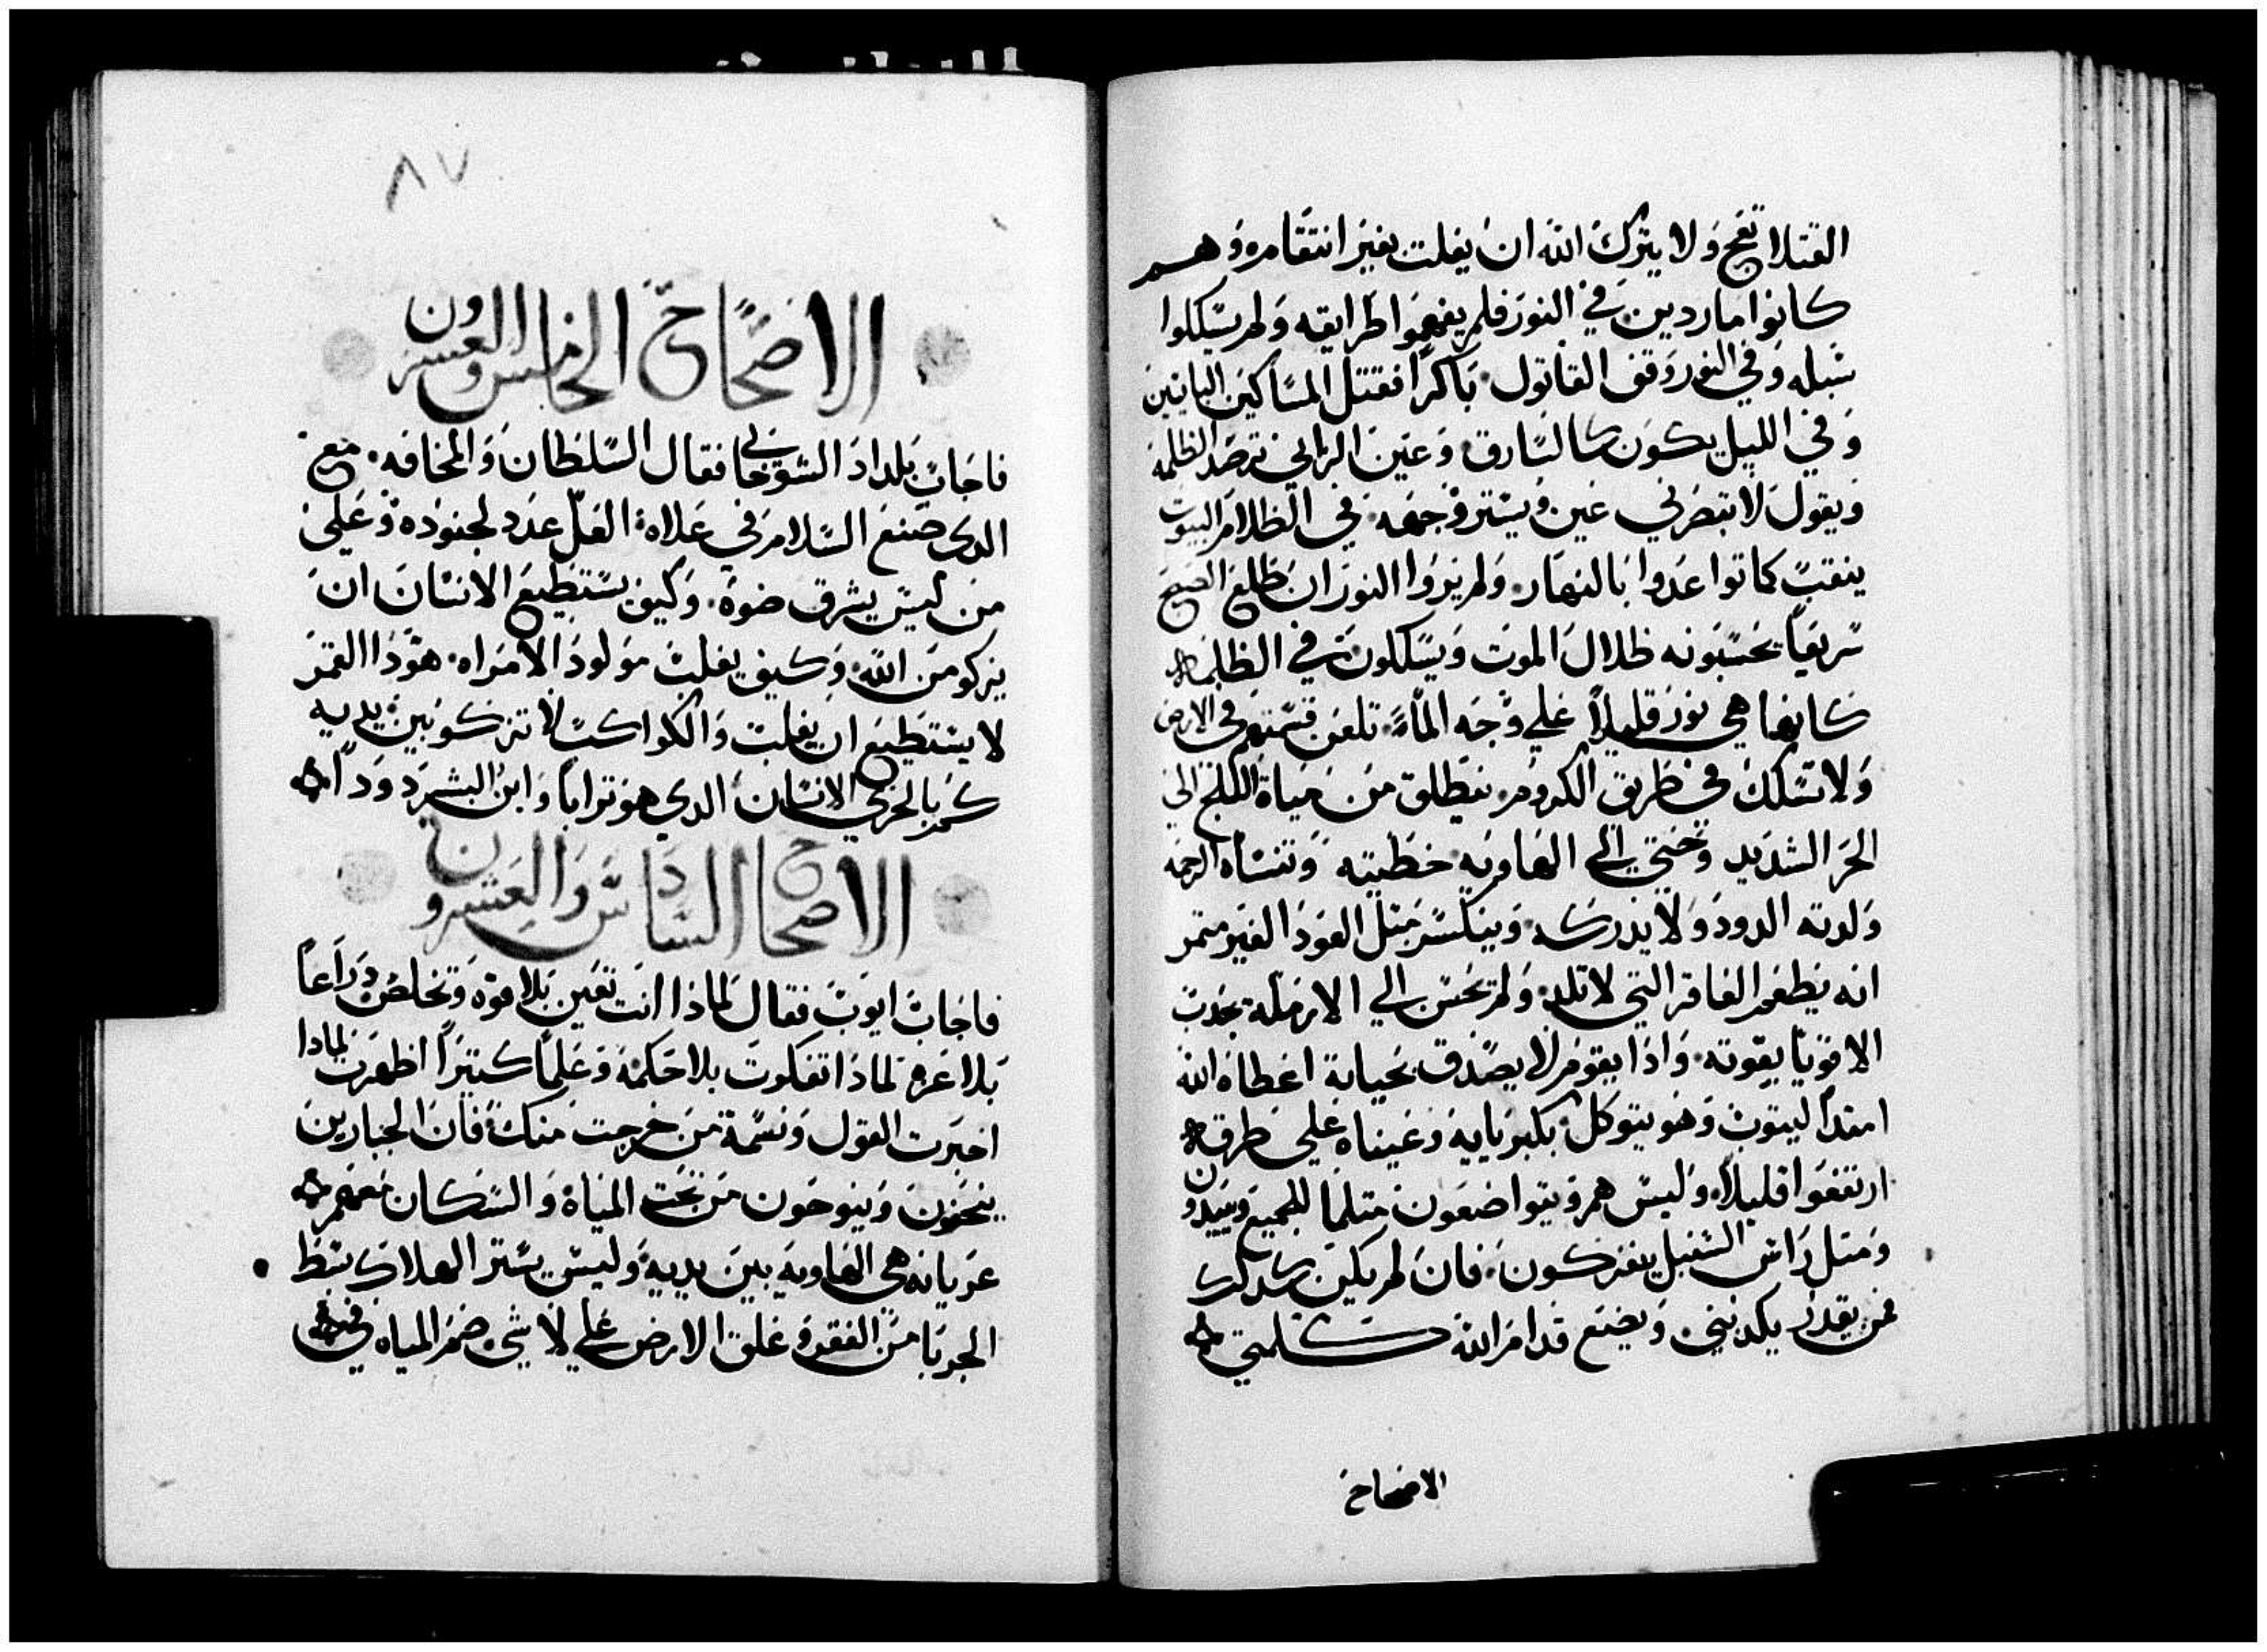 القتلا تعج ولا يترك الله ان يفلت بغير انتقامه وهم
كانوا ماردين في النور فلم يفهموا طرايقه ولم يسلكوا
سبله وفي النور وقف القاتول باكرا فقتل المساكين الباينين
وفي الليل يكون كالسارق وعين الزاني ترصد الظلمة
ويقول لا تبصرني عين ويستر وجهه في الظلام البيوت
ينقب كما تواعدوا بالنهار ولم يروا النور ان طلع الصبح
سريعا يحسبونه ظلال الموت ويسلكون في الظلما
كانها هي نور قليلا علي وجه الما تلعن قسمتهم في الارض
ولا تسلك في طريق الكروم ينطلق من مياة الثلج الي
الحر الشديد وحتي الي الهاويه خطيته وتنساه الرحمه
ولدته الدود ولا يدرك وينكسر مثل العود الغير متمر
انه يطعم العاقر التي لا تلد ولم يحسن الي الارملة بجدب
الاقويا بقوته واذا يقوم لا يصدق بحياتة اعطاه الله
امدا ليتوب وهو يتوكل بكبريايه وعيناه علي طرق
ارتفعوا قليلا وليس هم ويتواضعون متلما للجميع ويبيدون
ومتل راس السنبل ينفركون فان لم يكن كدلك
من يقدر يكدبني ويضع قدام الله كلمتي
الاصحاح
٨٧
الاصحاح الخامس والعشرون
فاجاب بلداد الشوحاني فقال السلطان والمخافه مع
الدي صنع السلام في علاه العل عدد لجنوده وعلي
من ليس يشرق ضوه وكيف يستطيع الانسان ان
يزكو من الله وكيف يفلت مولود الامراه هودا القمر
لا يستطيع ان يفلت والكواكب لا تزكو بين يديه
كم بالحري الانسان الدي هو ترابا وابن البشر دودا
الاصحاح السادس والعشرون
فاجاب ايوب فقال لماذا انت تعين بلا قوه وتخلص دراعا
بلا عزم لماذا تفكرت بلا حكمة وعلما كتيرا اظهرت لمادا
اخبرت القول ونسمة من خرجت منك فان الجبارين
ينحنون وينوحون من تحت المياة والسكان معهم
عريانه هي الهاويه بين يديه وليس يستر الهلاك بسط
الجربا من الفقد وعلق الارض علي لا شي ضم المياه في